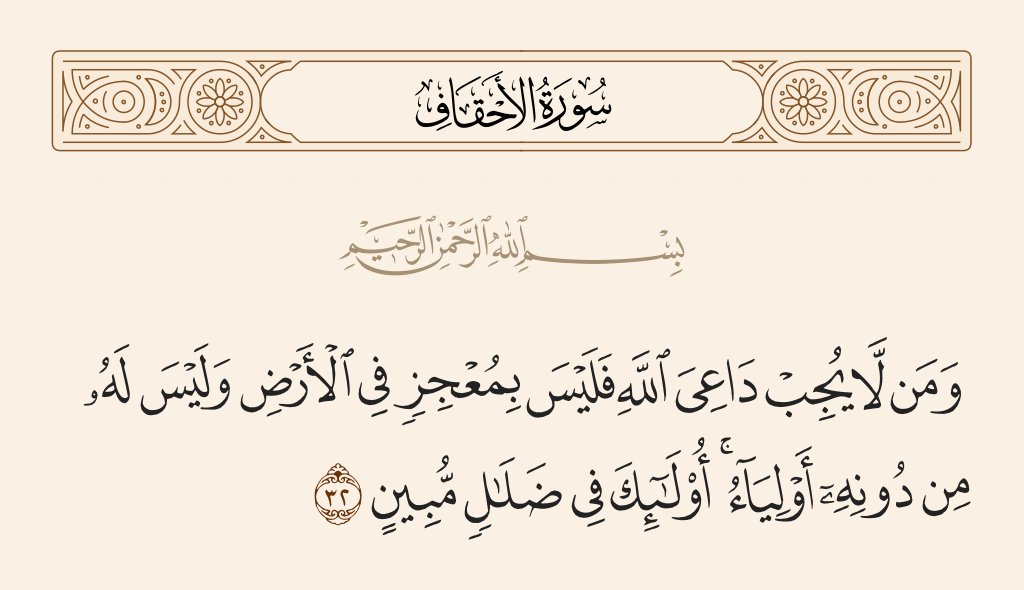 سُورَةُ الأَحْقَافِ
بِسْمِ ٱللَّهِ ٱلرَّحْمَٰنِ ٱلرَّحِيمِ
وَمَن لَّا يُجِبْ دَاعِىَ ٱللَّهِ فَلَيْسَ بِمُعْجِزٍ فِى ٱلْأَرْضِ وَلَيْسَ لَهُۥ
مِن دُونِهِۦٓ أَوْلِيَآءُ ۚ أُو۟لَـٰٓئِكَ فِى ضَلَـٰلٍ مُّبِينٍ ٣٢